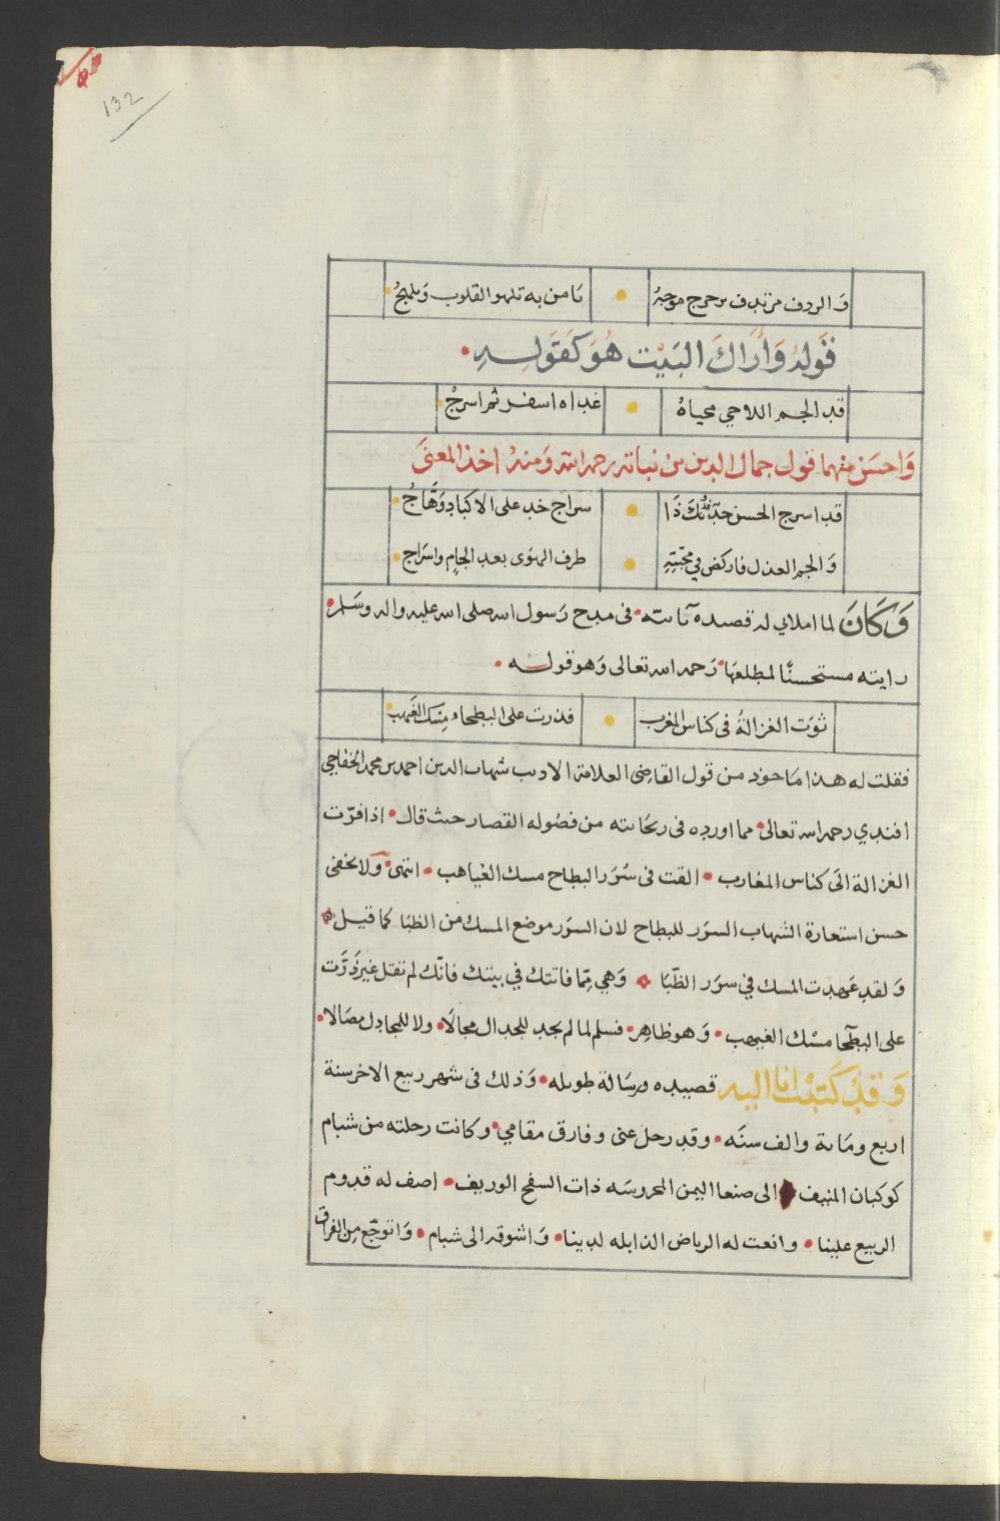 132
وَالردف مرتدف برجرج موجهُ • يَا من به تلهو القلوب وَتلهجُ •
قَولهُ وَأَرَاكَ البَيْت هُوَ كَقَولِهِ •
قد الجم اللاحي محياهُ • غداه اسفر ثم اسرجْ •
وَاحسَن منهما قول جمال الدين بن نباته رحمه الله وَمنهُ اخذ المعنىَ
قد اسرج الحسن خدّ ذَا • سراج خد على الاكبادِ وَهَّاجُ •
وَالجم العذل فاركض في محبّتِهِ • طرف الهوَى بعد الجامٍ واسَراج •
وَكَانَ لما املاني له قصيده بَابيته • فى مدح رَسول الله صلى الله عليه واله وسَلم •
رايته مستحسنًا لمطلعهَا • رَحمه الله تعالى وَهو قوله •
ثوَت الغزالةُ فى كناس المغرب • فذرت على البطحاء مِسك الغَيهب •
فقلت له هذا مَاخوذ من قول القاضى العلامة الاديب شهاب الدين احمد بن محمد الخفاجي
افندي رحمه الله تعالى • مما اورده فى ريحَانته من فصُوله القصار حيث قال • اذا فرّت
الغزالة الىَ كناس المغارب • القت فى سُرَر البطاح مسك الغياهب • انتهىَ • وَلا يخفى
حسن استعارة الشهاب السرَر للبطاح لان السرَر موضع المسك من الظبَا كما قيل
وَلقد عَهدت المسك في سرَر الظّبَا وَهي مِمّا فاتتك في بيتك فانّك لم تقل غير ذَرَّت
على البطَحا مسْك الغيهب • وَهو ظاهِر • فسلم لما لم يجد للجدال مجالًا • ولا للمجادل مصَالا •
وَقدْ كَتبْت انا اليه قصيده ورسَالة طويله • وَذلك فى شهر ربيع الاخر سنة
اربع ومَاية والف سنَه • وقد رحل عنى وفارق مقامي • وكانت رحلته من شبام
كوكبان المنيف الى صنعا اليمن المحروسَه ذات السفح الوريف • اصف له قدوم
الربيع علينا • وانعت له الرياض الذابله لدينا • وَاشوقه الى شبام • وَاتوجّع مِن الفراق